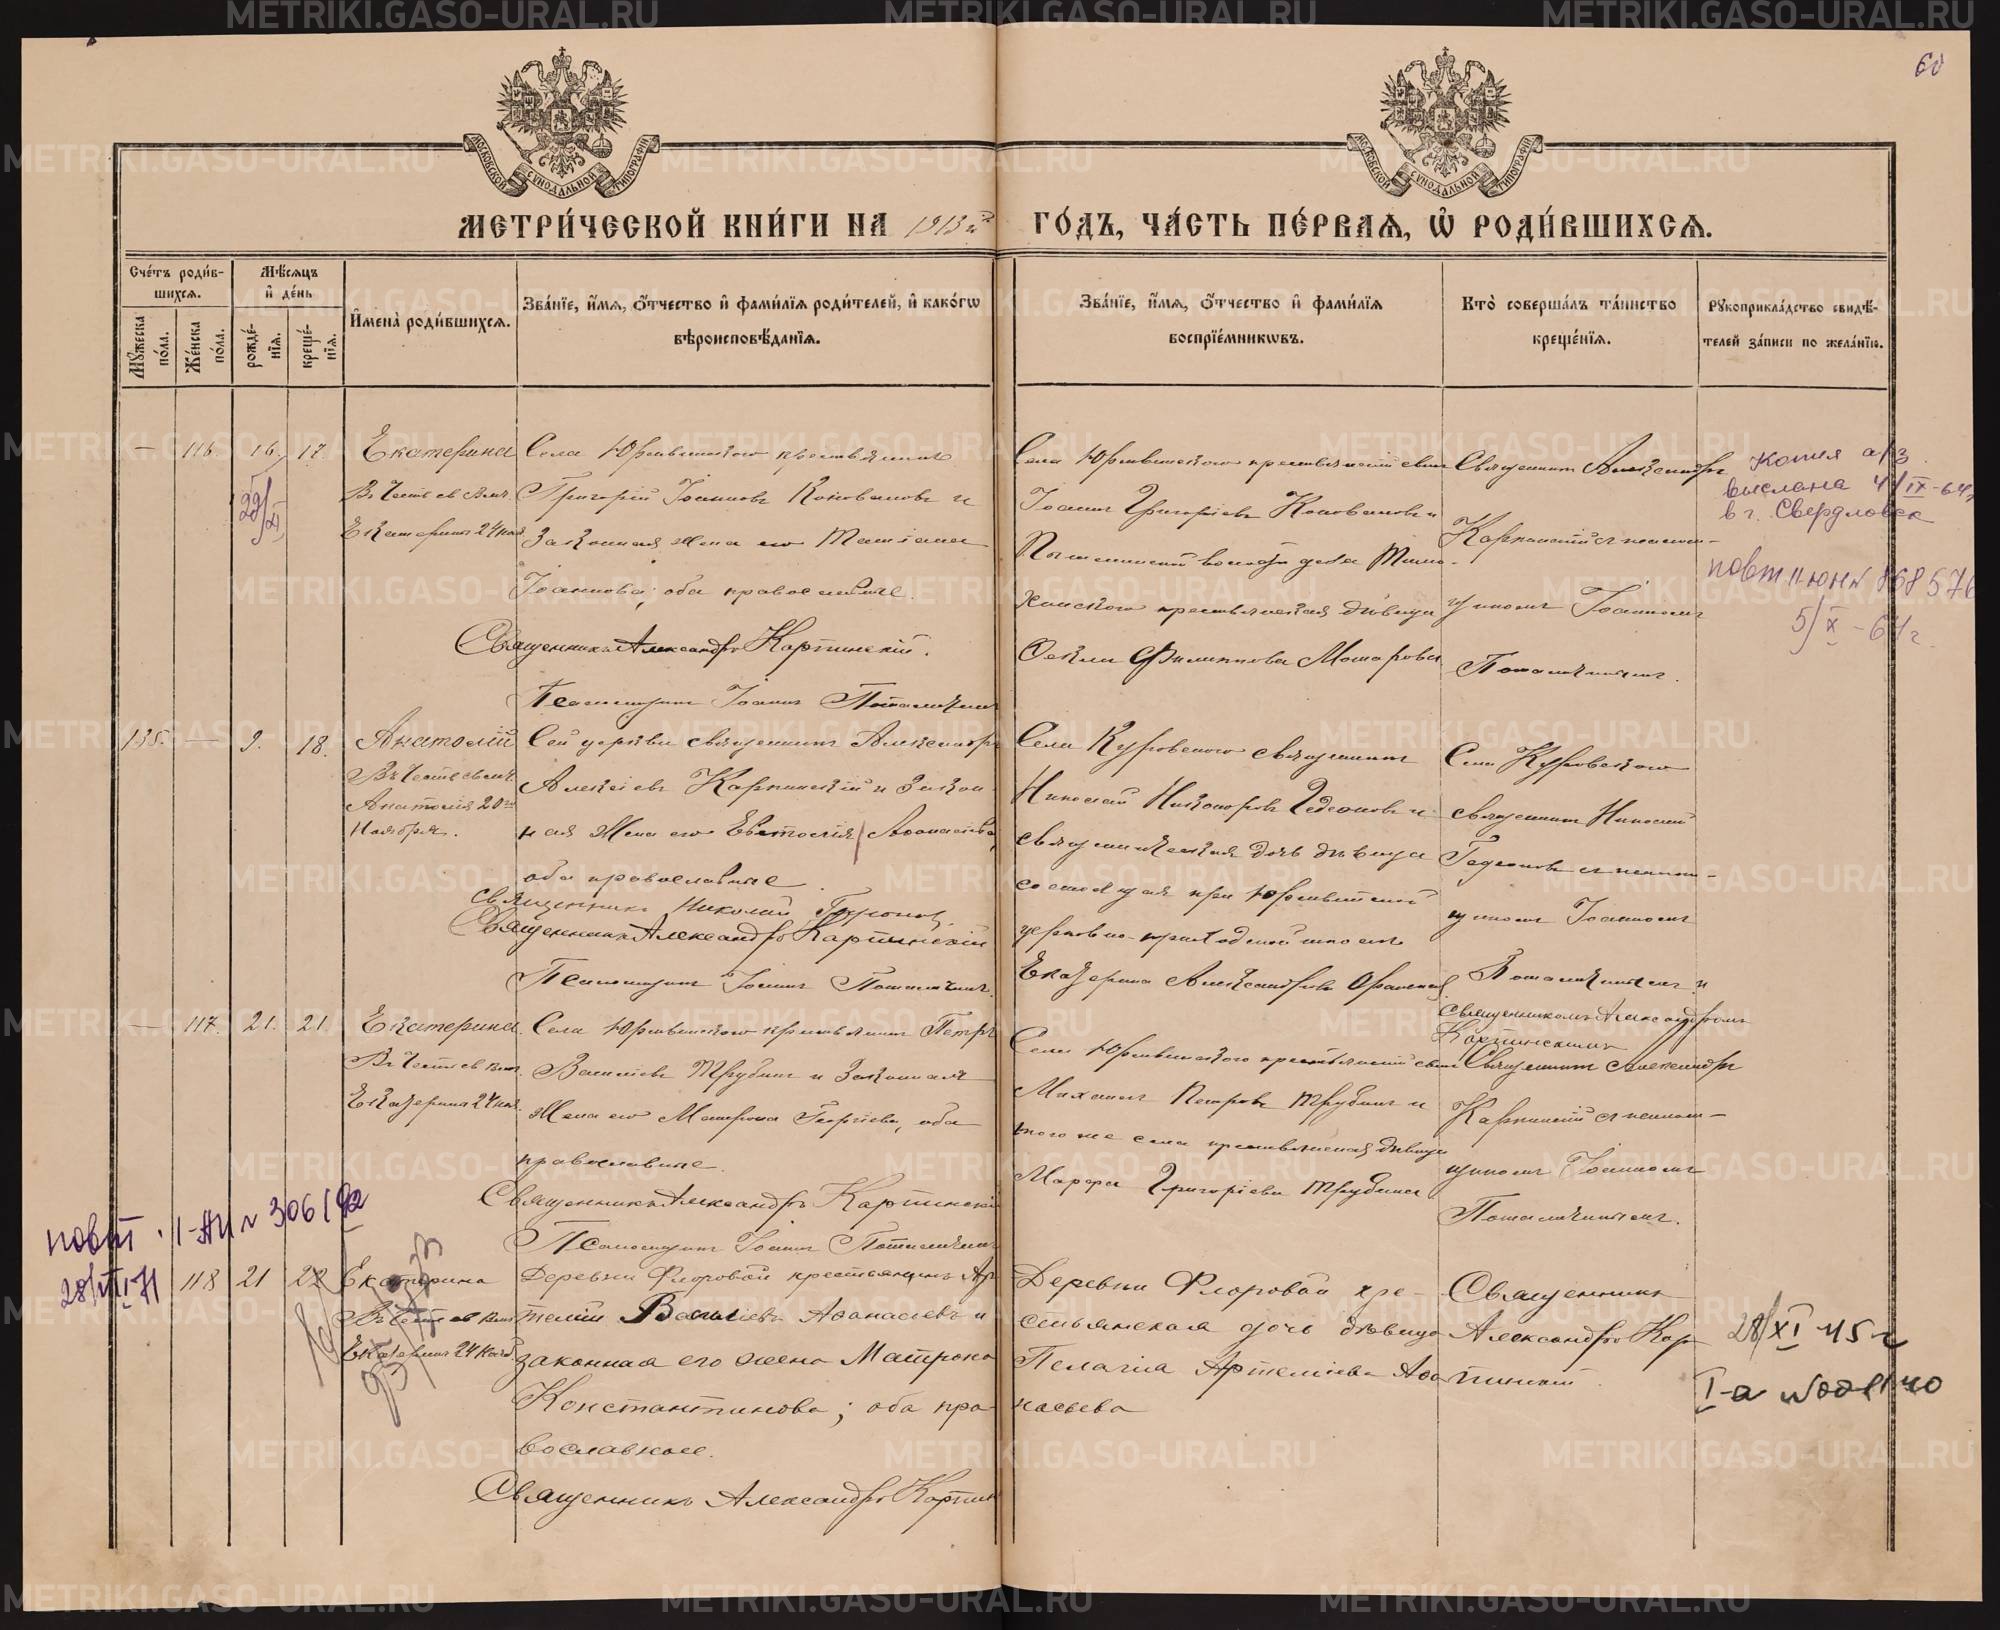 60
МОСКОВСКОЙ СѴНОДАЛЬНОЙ ТИПОГРАФІИ
МОСКОВСКОЙ СѴНОДАЛЬНОЙ ТИПОГРАФІИ
МЕТРИ́ЧЕСКОЙ КНИ́ГИ НА 1913й ГО́ДЪ, ЧА́СТЬ ПЕ́РВАѦ, Ѡ҆ РОДИ́ВШИХСѦ.
Сче́тъ роди́в-
шихсѧ.
Мѣ́сѧцъ
и҆ де́нь
Мꙋ́жеска
по́ла.
Же́нска
по́ла.
рожде́-
нїѧ.
креще́-
нїѧ.
И҆мена̀ роди́вшихсѧ.
Зва́нїе, и҆́мѧ, ѻ҆́тчество и҆ фами́лїѧ роди́телей, и҆ како́гѡ
вѣроисповѣ́данїѧ.
Зва́нїе, и҆́мѧ, ѻ҆́тчество и҆ фами́лїѧ
воспрїе́мникѡвъ.
Кто̀ соверша́лъ та́инство
креще́нїѧ.
Рꙋкоприкла́дство свидѣ́-
телей за́писи по жела́нїю.
— 116. 16. 17. Екатерина
Въ честь св. Влмч.
Екатерины 24 нояб.
Села Юрмытскаго крестьянинъ
Григорій Іоанновъ Коновановъ и
Законная жена его Татіана
Іоаннова; оба православные.
Священникъ Александръ Карпинскій.
Псаломщикъ Іоаннъ
Села Юрмытскаго крестьянскій сынъ
Іоаннъ Григоріевъ Коновановъ и
волости
крестьянская дѣвица
Ѳекла Филиппова Макарова
Священникъ Александръ
Карпинскій съ псалом-
щикомъ Іоанномъ
копия а/з
выслана 4/IX-64г
в г. Свердловск
повт II-ЮН № 868576
5/X-64г.
135. — 9. 18. Анатолій
Въ честь св. мч.
Анатолія 20го
Ноября.
Сей церкви священникъ Александръ
Алексіевъ Карпинскій и закон-
ная жена его Евстолія Аѳанасіева,
оба православные
Священникъ Николай Гедеонов.
Священникъ Александръ Карпинскій
Псаломщикъ Іоаннъ
Села Куровскаго священникъ
Николай Никаноровъ Гедеоновъ и
священническая дочь дѣвица
состоящая при Юрмытской
церковно-приходской школѣ
Екатерина Александрова
Села Куровскаго
священникъ Николай
Гедеоновъ съ псалом-
щикомъ Іоанномъ
и
священникомъ Александромъ
Карпинскимъ
— 117. 21. 21. Екатерина
Въ честь св. влмч.
Екатерины 24 нояб.
Села Юрмытскаго крестьянинъ Петръ
Василіевъ Трубинъ и законная
жена его Матрона Георгіева, оба
православные.
Священникъ Александръ Карпинскій
Псаломщикъ Іоаннъ
Села Юрмытскаго крестьянскій сынъ
Михаилъ Петровъ Трубинъ и
того же села крестьянская дѣвица
Марфа Григоріева Трубина
Священникъ Александръ
Карпинскій съ псалом-
щикомъ Іоанномъ
118 21 22 Екатерина
Въ честь св. влмч.
Екатерины 24 нояб.
Деревни Флоровой крестьянинъ Ар-
темій Василіевъ Аѳанасіевъ и
законная его жена Матрона
Константинова; оба пра-
вославные.
Священникъ Александръ Карпин
Деревни Флоровой кре-
стьянская дочь дѣвица
Пелагія Артеміева Аѳа-
насьева
Священникъ
Александръ Кар-
пинскій.
28/XI 45 г